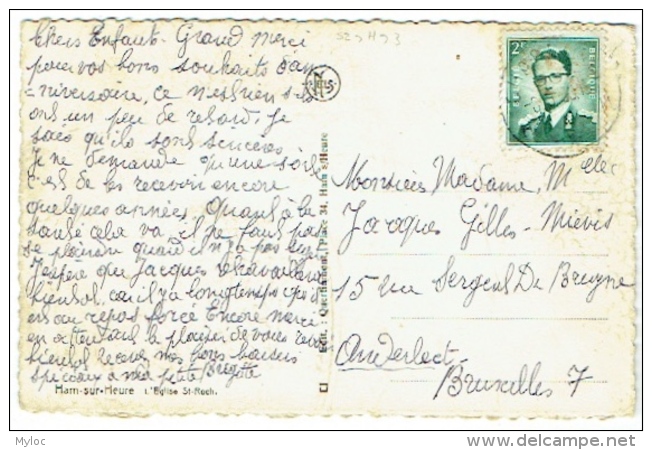 Chers Enfants. Grand merci
pour vos bons souhaits d'an
niversaire, ce n'est rien s'ils
ont un peu de retard, je
sais qu'ils sont sincères.
Je ne demande qu'une
c'est de les recevoir encore
quelques années. Quant à la
santé cela va, il ne faut pas
se plaindre quand il n'y a pas
J'espère que Jacques
bientôt car il y a longtemps qu'il
est au repos forcé Encore merci
en attendant le plaisir de vous
bientôt recevez mes bons baisers
spéciaux a ma petite Brigitte
Ham-sur-Heure L'Eglise St-Roch.
Edit. : Place, 34, Ham s/Heure
2F
BELGIQUE
Monsieur Madame, M elle
Jacques Gilles-Miévis
15 rue Sergent De Bruyne
Anderlecht-
Bruxelles 7
Myloc
delcampe.net